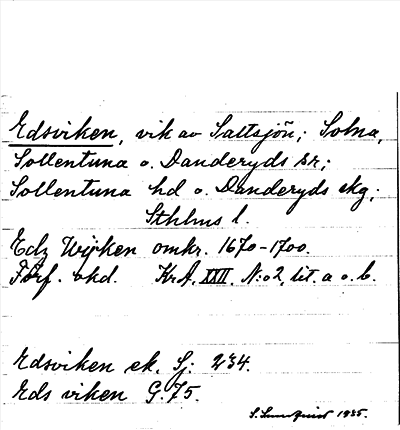 Edsviken, vik av Saltsjön; Solna,
Sollentuna o. Danderyds sr;
Sollentuna hd o. Danderyds skg;
Sthlms l.
Edz Wijken omkr. 1670-1700.
Förf. okd. Kr.A. XXII. N:o 2, lit. a o. b.
Edsviken ek. Sj: 234.
Eds viken G. 75.
1935.